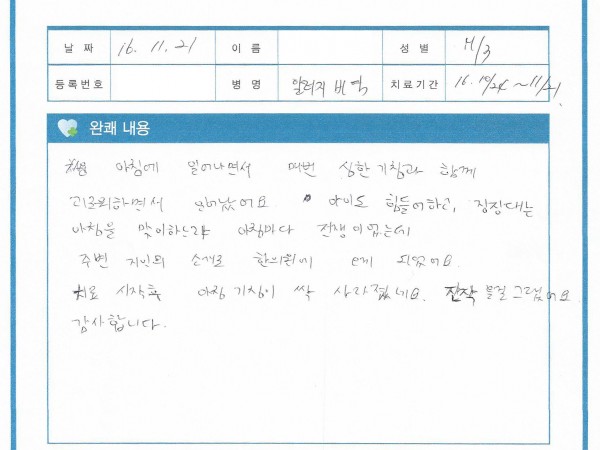 날 짜 16. 11. 21 이 름 성 별 M/3
등록번호 병 명 알러지 비염 치료기간 16. 10/24 ~ 11/21.
완쾌 내용
아침에 일어나면서 매번 심한 기침과 함께
괴로워하면서 일어났어요 아이도 힘들어하고, 징징대는
아침을 맞이하느라 아침마다 전쟁이었는데
주변 지인의 소개로 한의원에 오게 되었어요.
치료 시작후 아침 기침이 싹 사라졌네요. 진작 올걸 그랬어요
감사합니다.